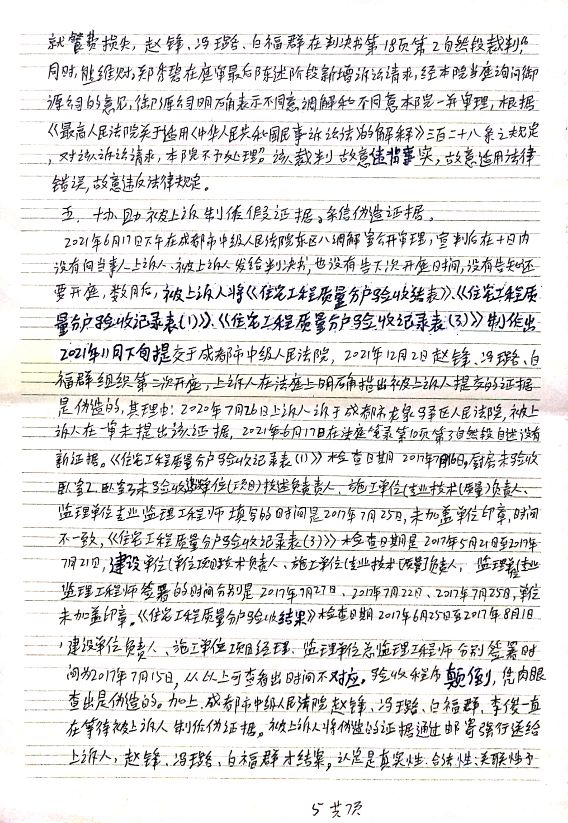 就管费损失，赵锋、冯璐、白福群在判决书第18页第2自然段裁判"
同时，熊维财、郑秀碧在庭审最后陈述阶段新增诉讼请求，经本院当庭询问御
源公司的意见，御源公司明确表示不同意调解和不同意本院一并审理，根据
《最高人民法院关于适用〈中华人民共和国民事诉讼法〉的解释》三百二十八条之规定
，对该诉讼请求，本院不予处理"。该裁判故意违背事实，故意适用法律
错误，故意违反法律规定。
五、协助被上诉制作假证据。采信伪造证据。
2021年6月17日下午在成都市中级人民法院东区八调解室公开审理，宣判后在十日内
没有向当事人上诉人、被上诉人发给判决书，也没有告下次开庭日间，没有告知还
要开庭，数月后，被上诉人将《住宅工程质量分户验收结表》、《住宅工程质
量分户验收记录表(1)》、《住宅工程质量分户验收记录表(3)》制作出
2021年11月下旬提交于成都市中级人民法院，2021年12月2日赵锋、冯璐、白
福群组织第二次开庭，上诉人在法庭上明确指出被上诉人提交的证据
是伪造的，其理由：2020年7月26日上诉人诉于成都市龙泉驿区人民法院，被上
诉人在一审未提出该证据，2021年6月17日在法庭笔录第10页第3自然段自述没有
新证据。《住宅工程质量分户验收记录表(1)》检查日期 2017年7月16日，厨房未验收
卧室2、卧室3未验收建单位(项目)技述负责人、施工单位(专业技术(质量)负责人、
监理单位专业监理工程师填写的时间是2017年7月25日，未加盖单位印章，时间
不一致，《住宅工程质量分户验收记录表(3)》检查日期是2017年5月21日至2017年
7月21日，建设单位(单位)项目技术负责人、施工单位(专业技术(质量)负责人， 监理专业
监理工程师签署的时间分别是2017年7月27日、2017年7月22日、2017年7月25日，单位
未加盖印章。《住宅工程质量分户验收结果》检查日期2017年6月25日至2017年8月1日
，建设单位负责人、施工单位项目经理、监理单位总监理工程师分别签署时
间为2017年7月15日，从以上可查看出时间不对应。验收程序颠倒，凭肉眼
查出是伪造的。加上，成都市中级人民法院赵锋、冯璐、白福群、李俊一直
在等待被上诉人制作伪证据。被上诉人将伪造的证据通过邮寄强行送给
上诉人，赵锋、冯璐、白福群才结案，认定是真实性、合法性、关联性予
5 共 页